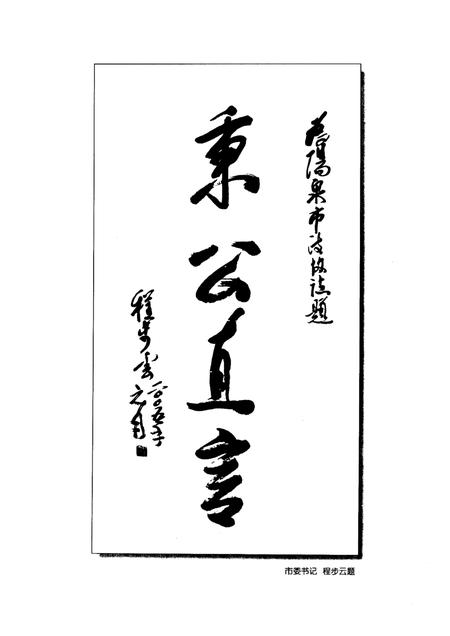 为陽泉市政协誌題
秉公直言
程步雲
二〇〇五年
元月
市委书记 程步云题